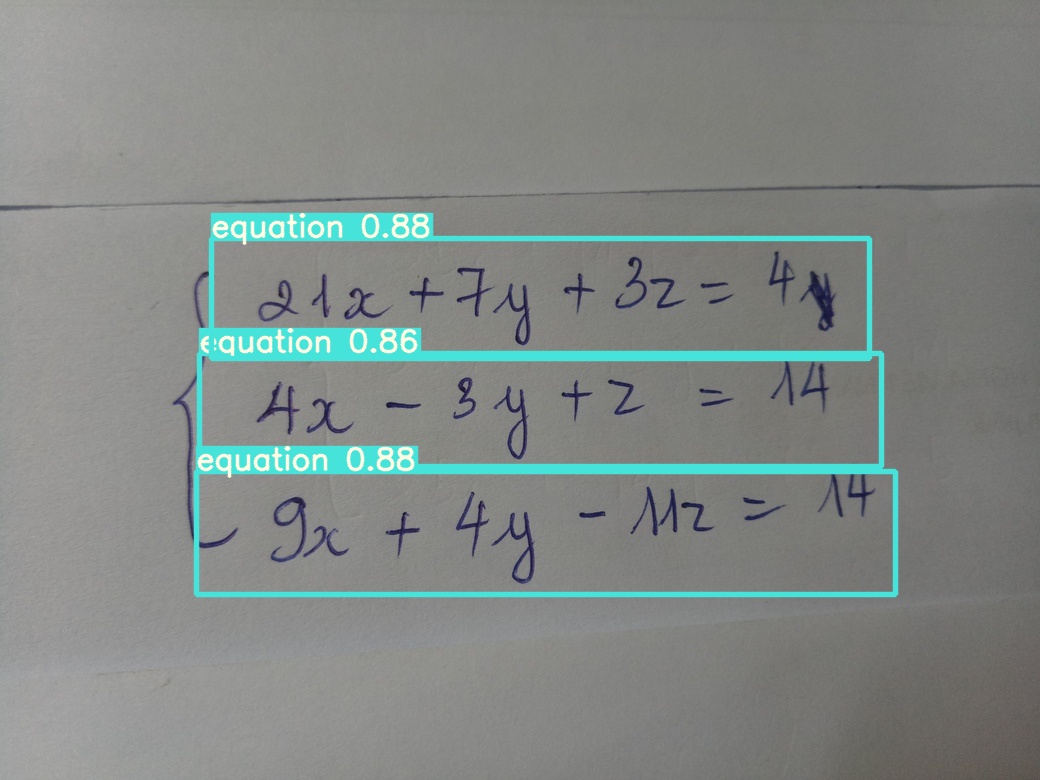 equation 0.88
21x + 7y + 3z = 4
equation 0.86
4x - 3y + z = 14
equation 0.88
9x + 4y - 11z = 14